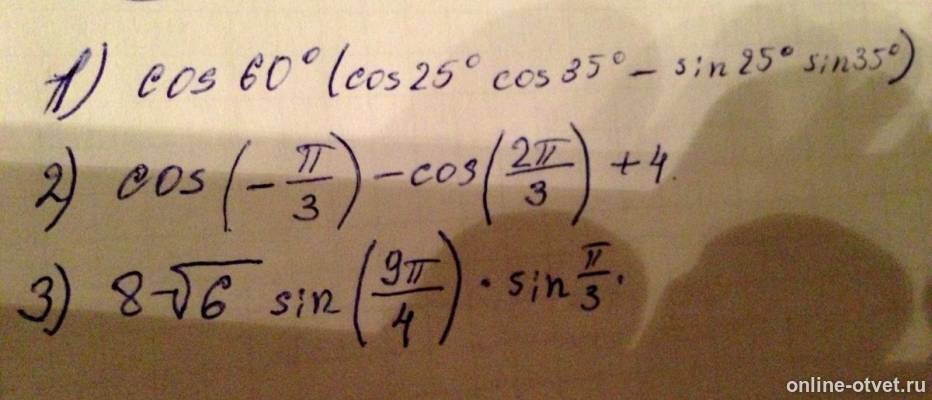 1) cos 60° (cos 25° cos 35° - sin 25° sin 35°)
2) cos (-π/3) - cos (2π/3) + 4.
3) 8√6 sin (9π/4) · sin π/3.
online-otvet.ru